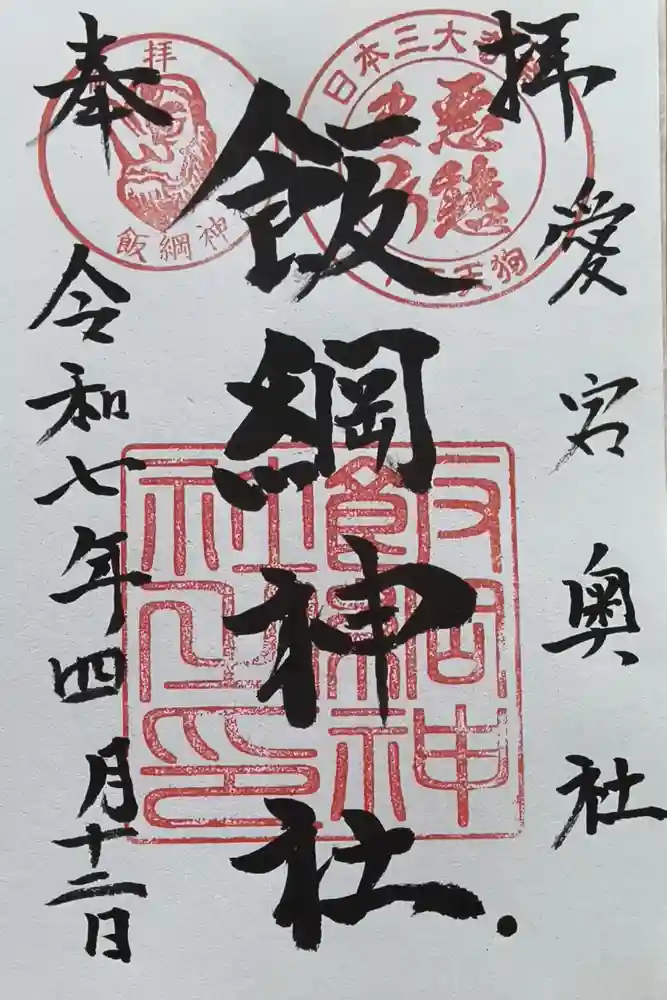 奉拝
愛宕奥社
飯綱神社
令和七年四月十二日
拝
飯綱神
日本三大
悪態
天狗
飯綱神社之印